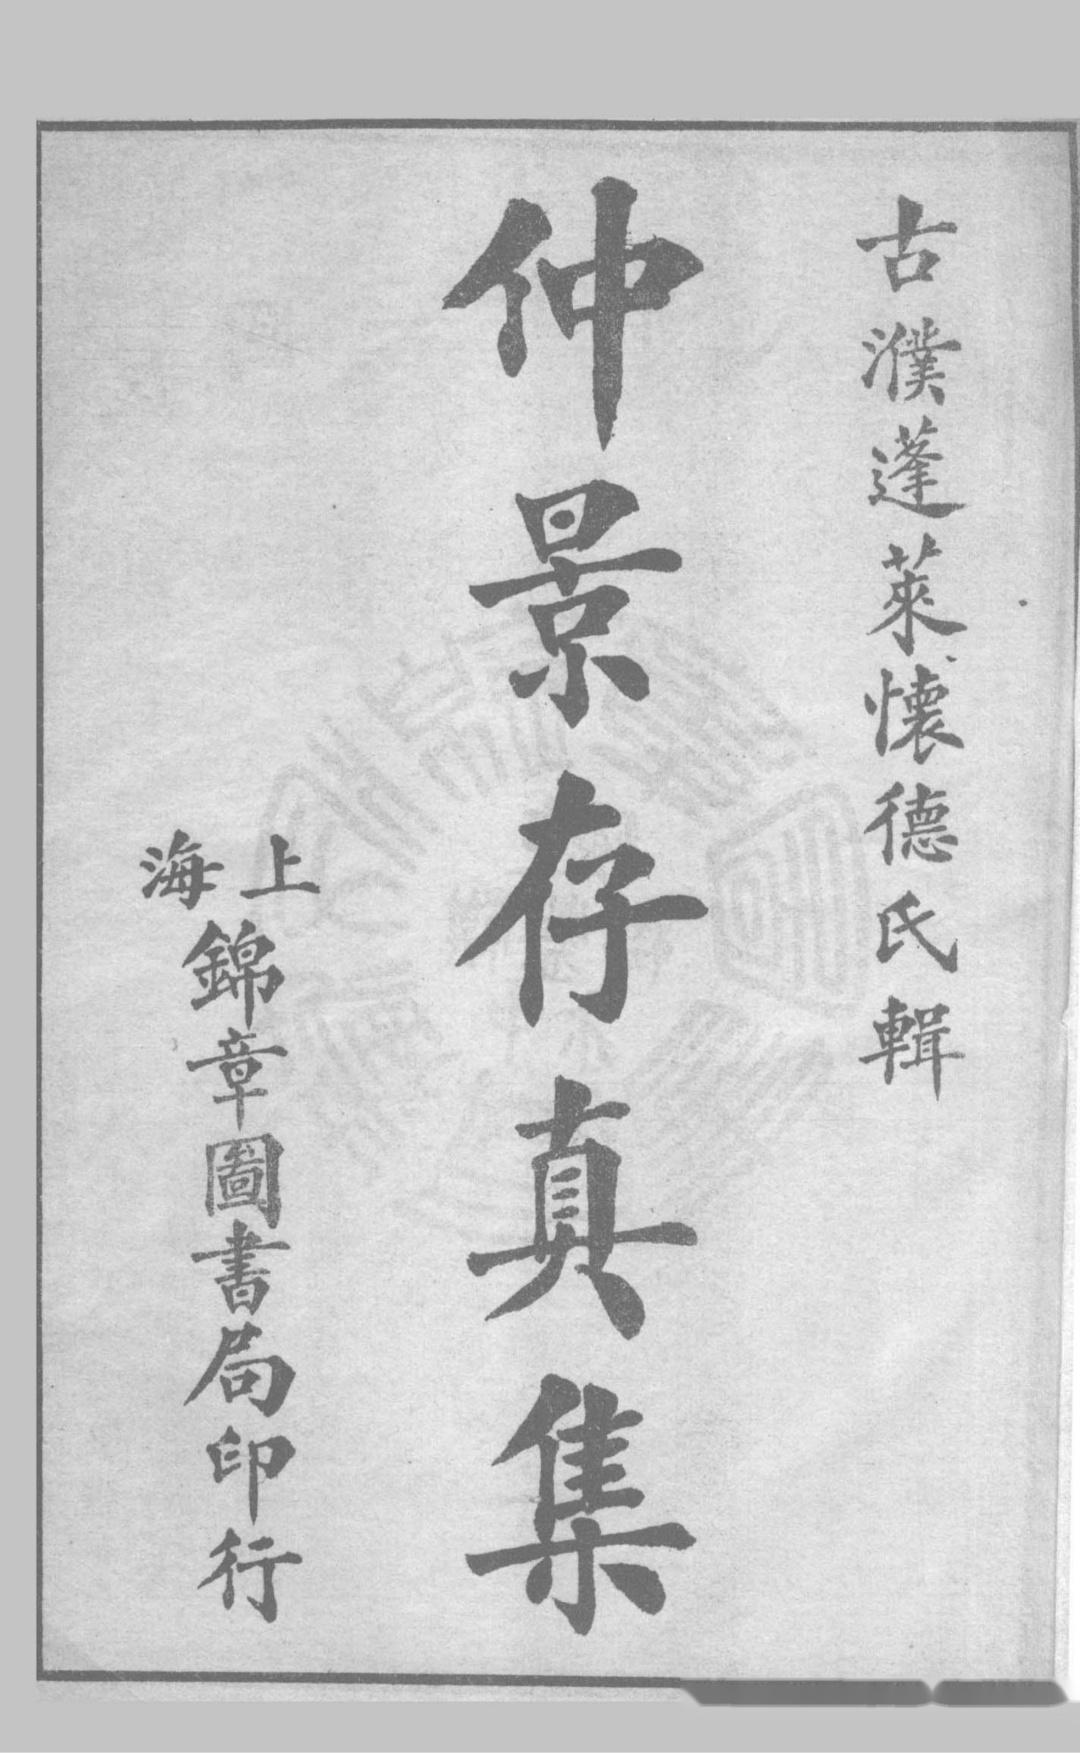 古濮蓬萊懷德氏輯
仲景存真集
上海
錦章圖書局印行